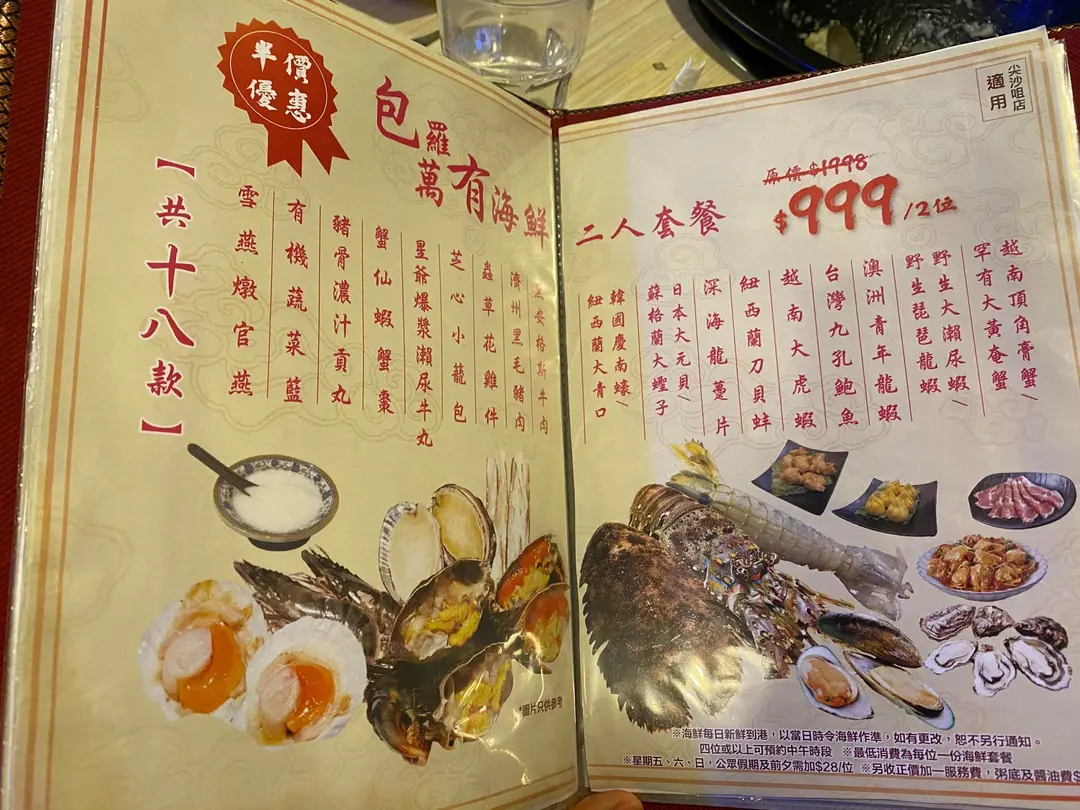 半價
優惠
包羅萬有海鮮
【共十八款】
尖沙咀店
適用
原價$1998
二人套餐
$999/2位
越南頂角膏蟹/
罕有大黃奄蟹
野生大瀨尿蝦/
野生琵琶龍蝦
澳洲青年龍蝦
台灣九孔鮑魚
越南大虎蝦
紐西蘭刀貝蚌
深海龍躉片
日本大元貝/
蘇格蘭大蟶子
韓國慶南蠔/
紐西蘭大青口
安格斯牛肉
濟州黑毛豬肉
蟲草花雞件
芝心小籠包
星爺爆漿瀨尿牛丸
蟹仙蝦蟹棗
豬骨濃汁貢丸
有機蔬菜籃
雪燕燉官燕
*圖片只供參考
※海鮮每日新鮮到港，以當日時令海鮮作準，如有更改，恕不另行通知。
四位或以上可預約中午時段 ※最低消費為每位一份海鮮套餐
※星期五、六、日，公眾假期及前夕需加$28/位 ※另收正價加一服務費，粥底及醬油費$